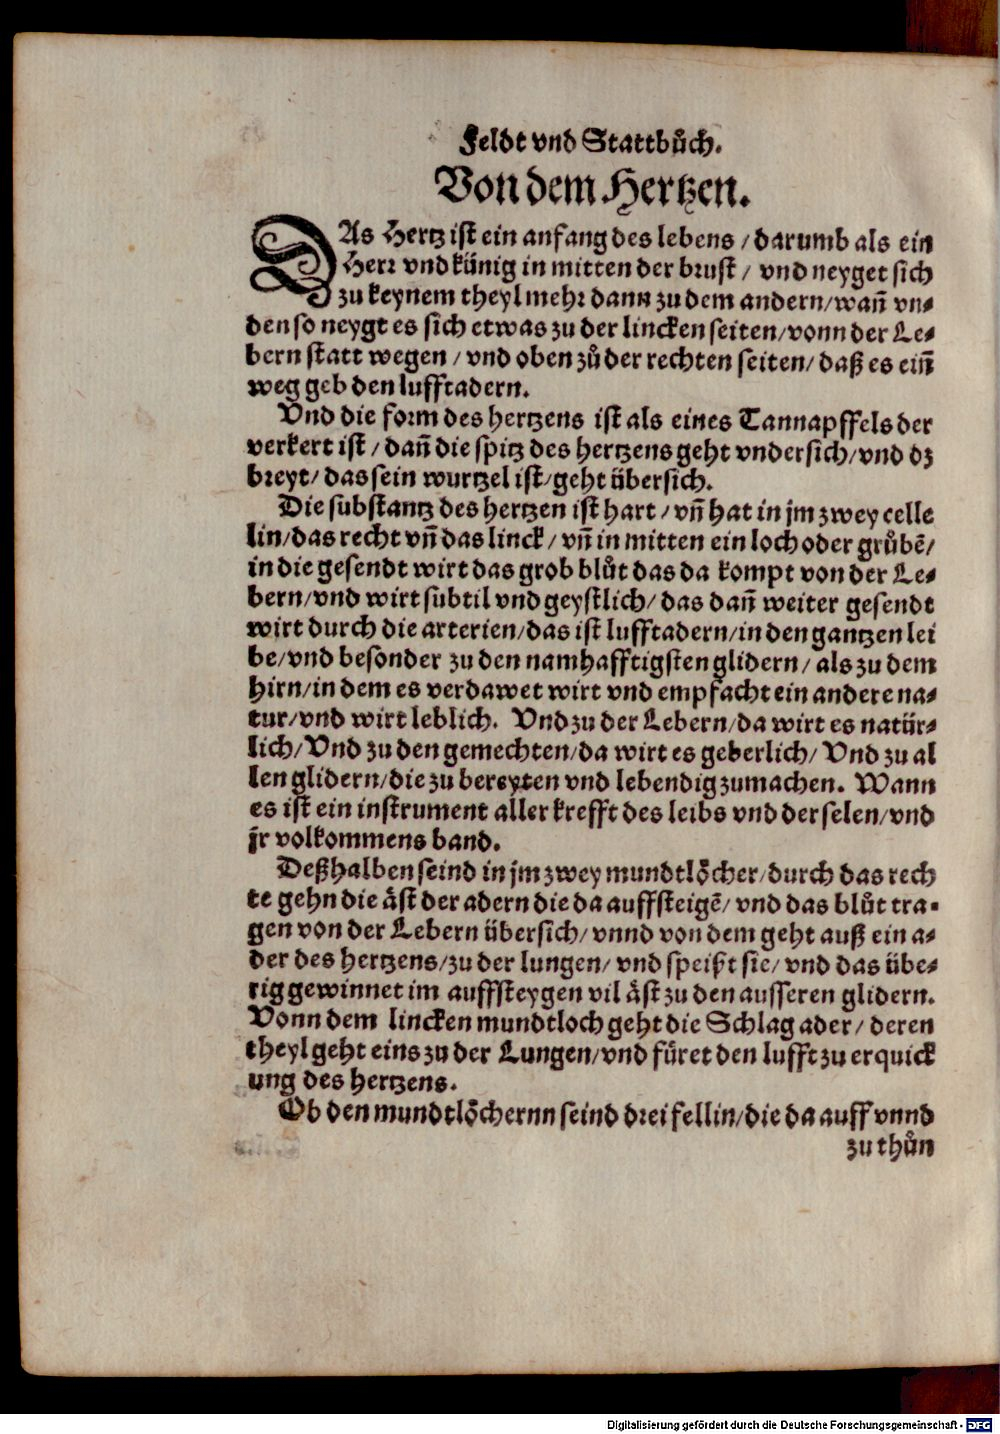 Feldt vnd Stattbůch.
Von dem Hertzen.
DAs Hertz ist ein anfang des lebens / darumb als ein
Herr vnd künig in mitten der brust / vnd neyget sich
zu keynem theyl mehr dann zu dem andern/wañ vn-
den so neygt es sich etwas zu der lincken seiten/vonn der Le-
bern statt wegen / vnd oben zů der rechten seiten/ daß es eiñ
weg geb den lufftadern.
Vnd die form des hertzens ist als eines Tannapffels der
verkert ist / dañ die spitz des hertzens geht vndersich/vnd dz
breyt/ das sein wurtzel ist/geht übersich.
Die substantz des hertzen ist hart / vñ hat in jm zwey celle
lin/das recht vñ das linck / vñ in mitten ein loch oder grůbẽ/
in die gesendt wirt das grob blůt das da kompt von der Le-
bern/vnd wirt subtil vnd geystlich/ das dañ weiter gesendt
wirt durch die arterien/das ist lufftadern/in den gantzen lei
be/vnd besonder zu den namhafftigsten glidern/ als zu dem
hirn/in dem es verdawet wirt vnd empfacht ein andere na-
tur/vnd wirt leblich. Vnd zu der Lebern/da wirt es natür-
lich/Vnd zu den gemechten/da wirt es geberlich/ Vnd zu al
len glidern/die zu bereyten vnd lebendig zumachen. Wann
es ist ein instrument aller krefft des leibs vnd der selen/vnd
jr volkommens band.
Deßhalben seind in jm zwey mundtlöcher/durch das rech
te gehn die äst der adern die da auffsteigẽ/ vnd das blůt tra-
gen von der Lebern übersich/ vnnd von dem geht auß ein a-
der des hertzens/zu der lungen/ vnd speißt sie/ vnd das übe-
rig gewinnet im auffsteygen vil äst zu den ausseren glidern.
Vonn dem lincken mundtloch geht die Schlag ader/ deren
theyl geht eins zu der Lungen/vnd füret den lufft zu erquick
ung des hertzens.
Ob den mundtlöchernn seind drei fellin/die da auff vnnd
zu thůn
Digitalisierung gefördert durch die Deutsche Forschungsgemeinschaft - DFG